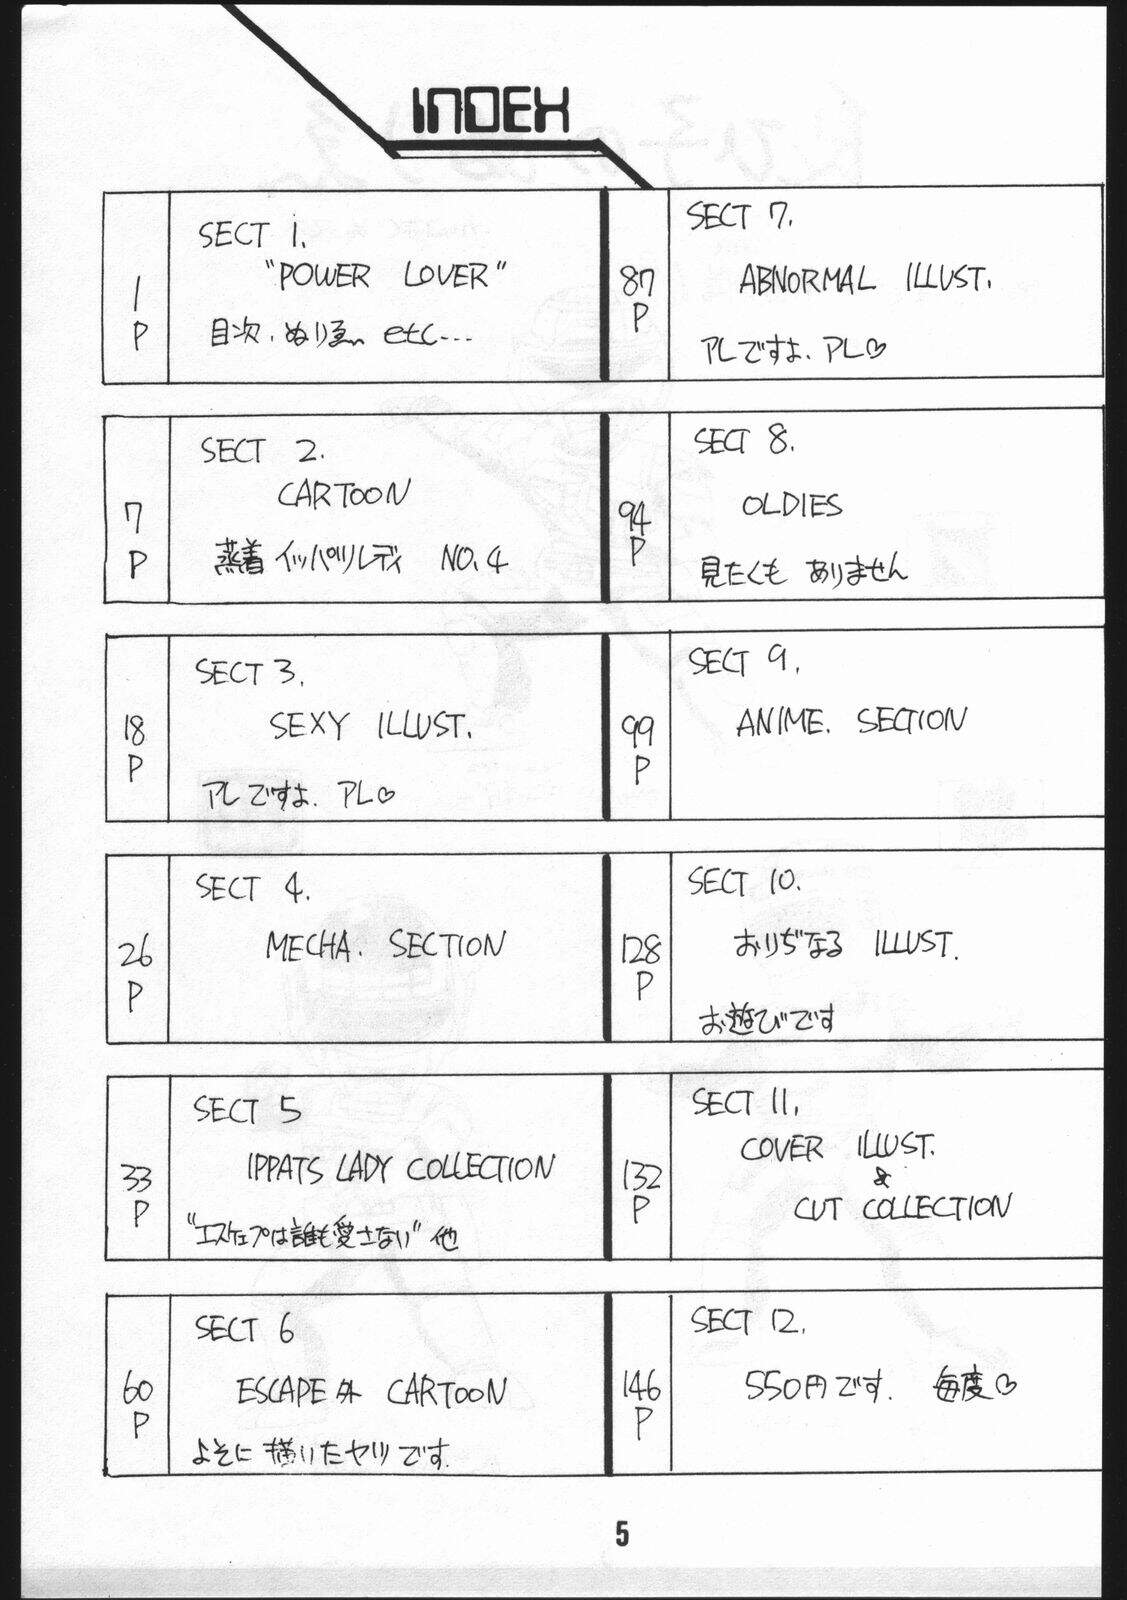 INDEX
1
P
SECT 1.
"POWER LOVER"
目次、ぬりゑ、etc---
7
P
SECT 2.
CARTOON
蒸着イッパツレディ NO.4
18
P
SECT 3.
SEXY ILLUST.
アレですよ、アレ♡
26
P
SECT 4.
MECHA. SECTION
33
P
SECT 5
IPPATS LADY COLLECTION
"エスケェプは誰も愛さない"他
60
P
SECT 6
ESCAPE外 CARTOON
よそに描いたヤツです.
87
P
SECT 7.
ABNORMAL ILLUST.
アレですよ、アレ♡
94
P
SECT 8.
OLDIES
見たくもありません
99
P
SECT 9.
ANIME. SECTION
128
P
SECT 10.
おりぢなる ILLUST.
お遊びです
132
P
SECT 11.
COVER ILLUST.
&
CUT COLLECTION
146
P
SECT 12.
550円です. 毎度♡
5